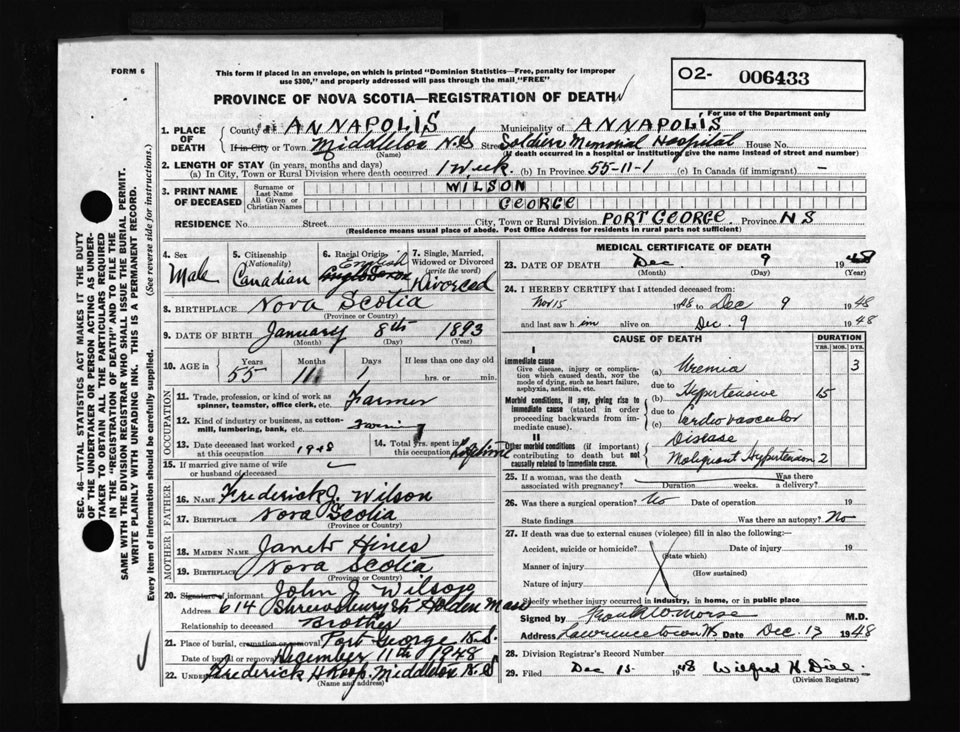 FORM 6
This form if placed in an envelope, on which is printed "Dominion Statistics—Free, penalty for improper
use $300," and properly addressed will pass through the mail "FREE"
O2- 006433
PROVINCE OF NOVA SCOTIA—REGISTRATION OF DEATH
For use of the Department only
1. PLACE OF DEATH County of ANNAPOLIS Municipality of ANNAPOLIS
If in City or Town Middleton N.S (Name) Street Soldiers Memorial Hospital House No.
(If death occurred in a hospital or institution, give the name instead of street and number)
2. LENGTH OF STAY (in years, months and days)
(a) In City, Town or Rural Division where death occurred 1 Week. (b) In Province 55-11-1 (c) In Canada (if immigrant) —
3. PRINT NAME OF DECEASED Surname or Last Name WILSON
All Given or Christian Names GEORGE
RESIDENCE No. Street City, Town or Rural Division PORT GEORGE. Province N S
(Residence means usual place of abode. Post Office Address for residents in rural parts not sufficient)
4. Sex Male
5. Citizenship (Nationality) Canadian
6. Racial Origin English
7. Single, Married, Widowed or Divorced (write the word) Divorced
8. BIRTHPLACE Nova Scotia
(Province or Country)
9. DATE OF BIRTH January 8th 1893
(Month) (Day) (Year)
10. AGE in Years 55 Months 11 Days 1 If less than one day old hrs. or min.
OCCUPATION
11. Trade, profession, or kind of work as spinner, teamster, office clerk, etc. Farmer
12. Kind of industry or business, as cotton-mill, lumbering, bank, etc.
13. Date deceased last worked at this occupation 1948
14. Total yrs. spent in this occupation Lifetime
15. If married give name of wife or husband of deceased
FATHER
16. NAME Frederick J. Wilson
17. BIRTHPLACE Nova Scotia
(Province or Country)
MOTHER
18. MAIDEN NAME Janet Hines
19. BIRTHPLACE Nova Scotia
(Province or Country)
20. Signature of informant John J Wilson
Address 614 Shrewsbury St Holden Mass
Relationship to deceased Brother
21. Place of burial, cremation or removal Port George N.S.
Date of burial or removal December 11th 1948
22. UNDERTAKER Frederick Middleton N.S
(Name and address)
MEDICAL CERTIFICATE OF DEATH
23. DATE OF DEATH Dec. 9 1948
(Month) (Day) (Year)
24. I HEREBY CERTIFY that I attended deceased from:
Nov 15 1948 to Dec 9 1948
and last saw him alive on Dec. 9 1948
CAUSE OF DEATH DURATION
YRS. MOS. DYS.
I
Immediate cause
Give disease, injury or complication which caused death, not the mode of dying, such as heart failure, asphyxia, asthenia, etc.
(a) Uremia 3
due to
Morbid conditions, if any, giving rise to immediate cause (stated in order proceeding backwards from immediate cause).
(b) Hypertensive 15
due to
(c) Cardiovascular
Disease
II
Other morbid conditions (if important) contributing to death but not causally related to immediate cause.
Malignant Hypertension 2
25. If a woman, was the death associated with pregnancy? Duration weeks. Was there a delivery?
26. Was there a surgical operation? No Date of operation 19
State findings Was there an autopsy? No
27. If death was due to external causes (violence) fill in also the following:
Accident, suicide or homicide? (State which) Date of injury 19
Manner of injury (How sustained)
Nature of injury
Specify whether injury occurred in industry, in home, or in public place
Signed by Morse M.D.
Address Lawrencetown NS Date Dec. 13 1948
28. Division Registrar's Record Number
29. Filed Dec 15 1948 Wilfred
(Division Registrar)
SEC. 46—VITAL STATISTICS ACT MAKES IT THE DUTY
OF THE UNDERTAKER OR PERSON ACTING AS UNDER-
TAKER TO OBTAIN ALL THE PARTICULARS REQUIRED
IN THE "REGISTRATION OF DEATH" AND TO FILE THE
SAME WITH THE DIVISION REGISTRAR WHO SHALL ISSUE THE BURIAL PERMIT.
WRITE PLAINLY WITH UNFADING INK. THIS IS A PERMANENT RECORD.
Every item of information should be carefully supplied. (See reverse side for instructions.)